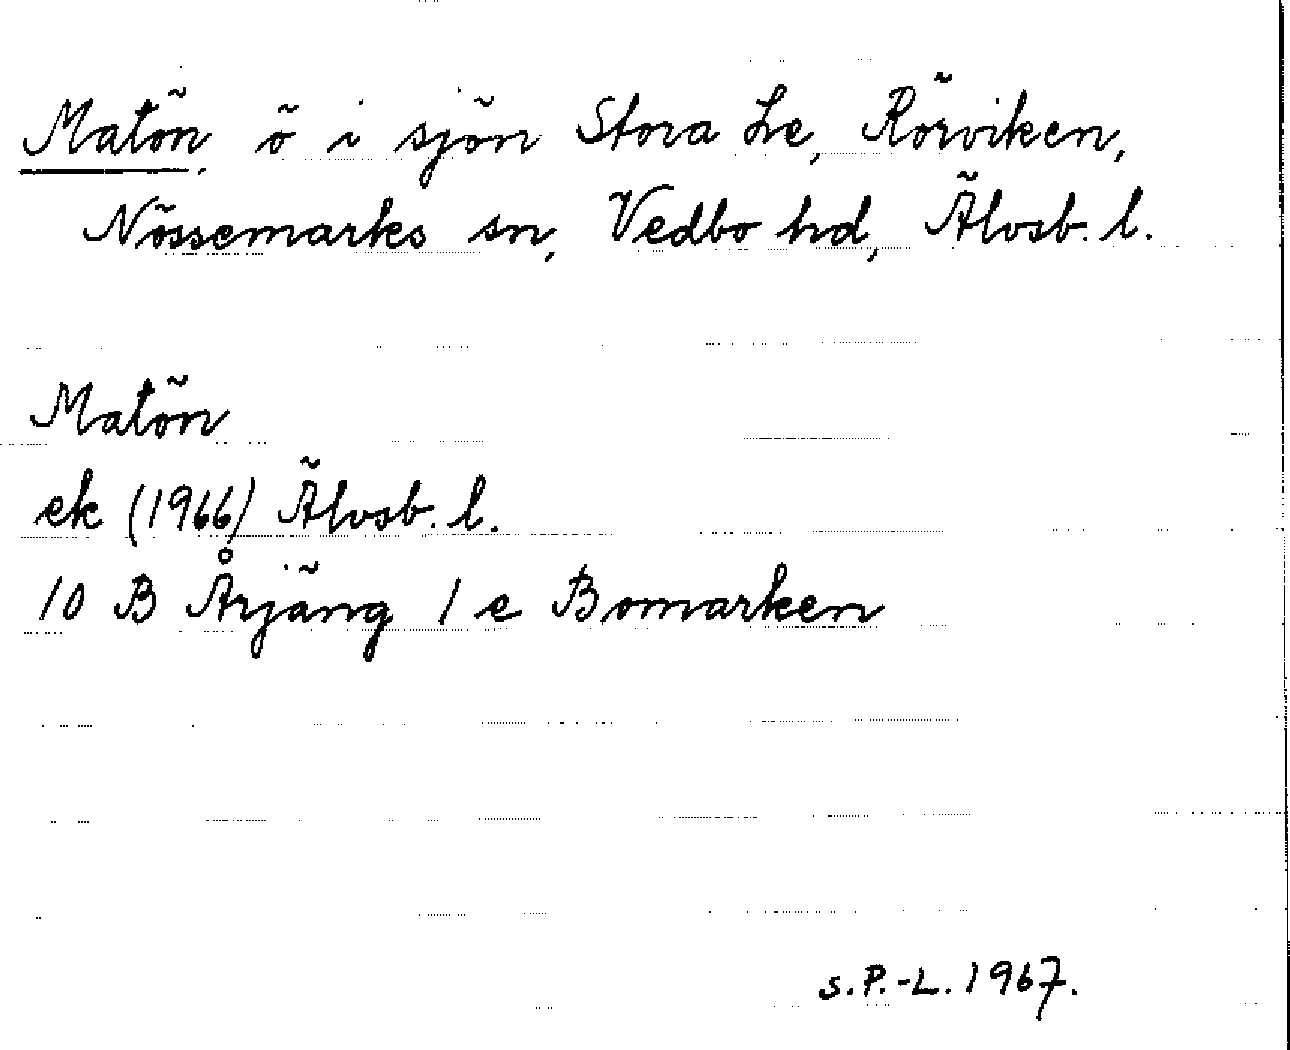 Matön, ö i sjön Stora Le, Rörviken,
Nössemarks sn, Vedbo hd, Älvsb. l.
Matön
ek (1966) Älvsb. l.
10 B Årjäng 1 e Bomarken
s.P.-L. 1967.